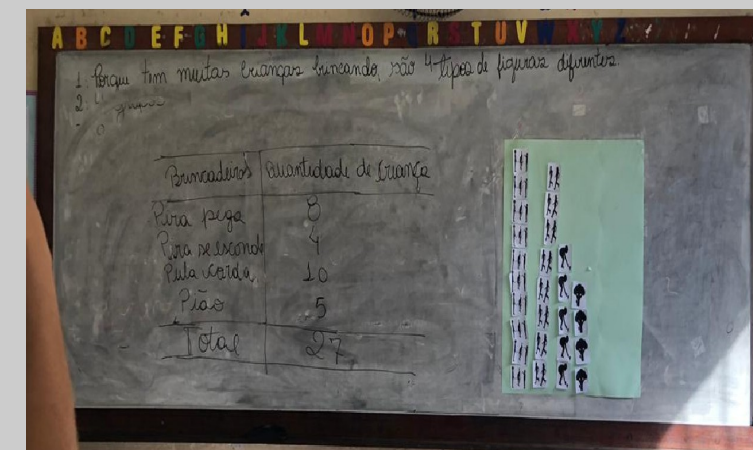 A B C D E F G H I J K L M N O P Q R S T U V W X Y Z
1. Porque tem muitas crianças brincando, são 4 tipos de figuras diferentes.
2.
Brincadeiras Quantidade de criança
Pira pega 8
Pira se esconde 4
Pula corda 10
Pião 5
Total 27